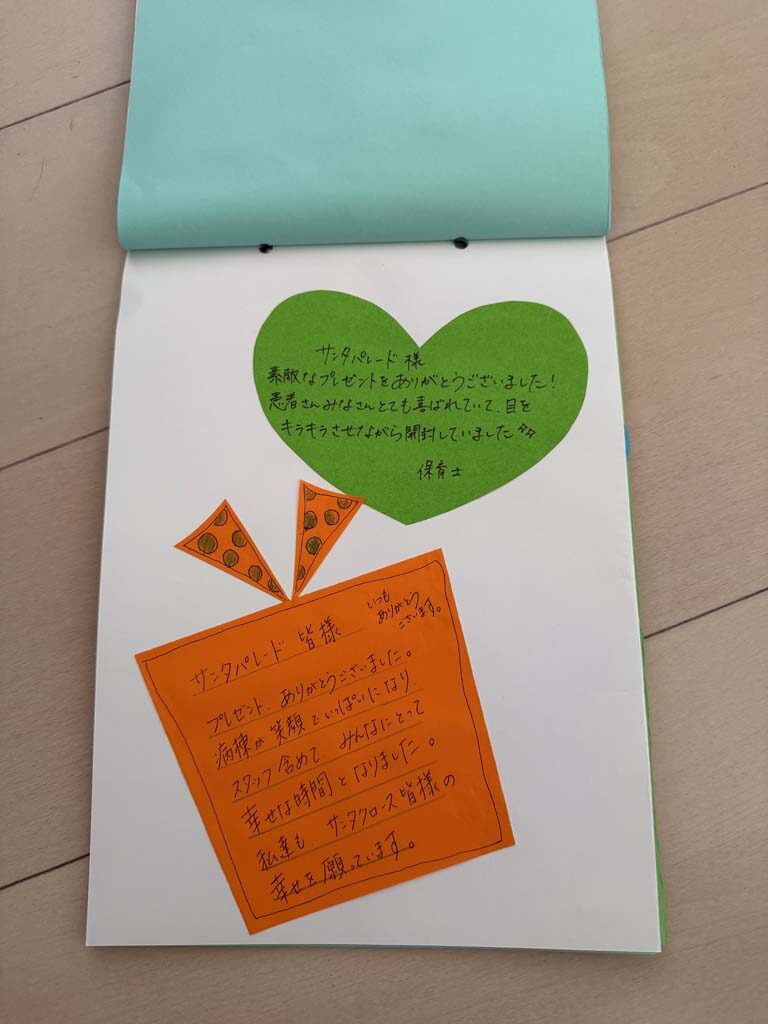 サンタパレード様
素敵なプレゼントをありがとうございました！
患者さんみなさんとても喜ばれていて、目を
キラキラさせながら開封していました
保育士
サンタパレード 皆様
いつも
ありがとう
ございます。
プレゼント、ありがとうございました。
病棟が笑顔でいっぱいになり
スタッフ含めて みんなにとって
幸せな時間となりました。
私達も、サンタクロース皆様の
幸せを願っています。